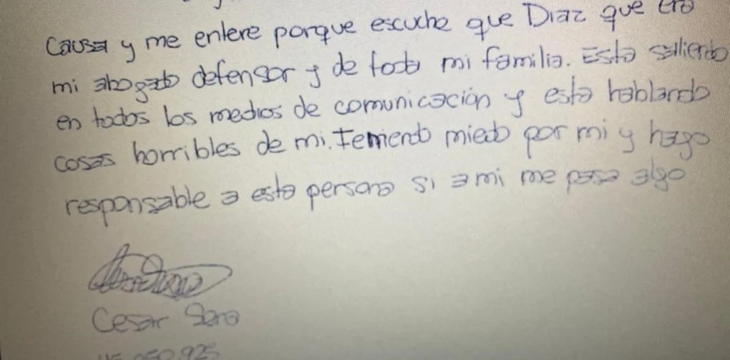 causa y me entere porque escuche que Diaz que era
mi abogado defensor y de toda mi familia. Esta saliendo
en todos los medios de comunicación y esta hablando
cosas horribles de mi. Temiendo miedo por mi y hago
responsable a esta persona si a mi me pasa algo
Cesar Sena